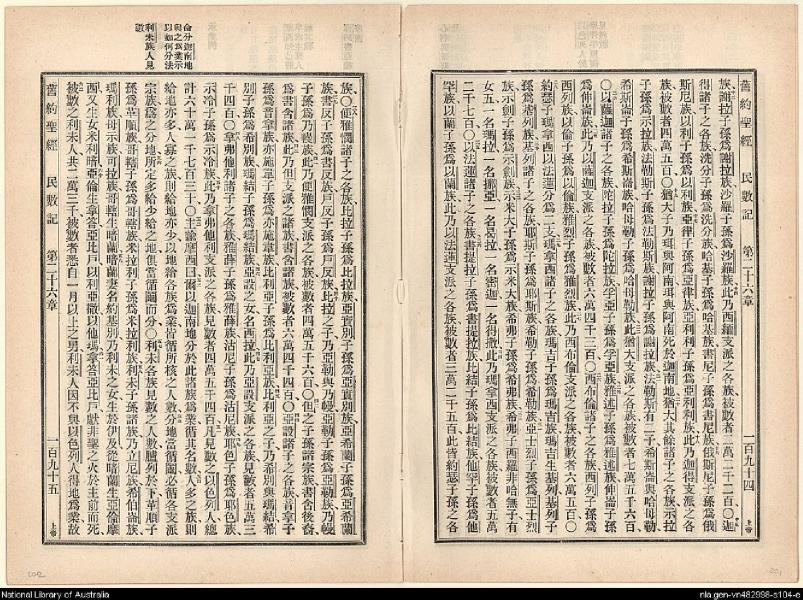 舊約聖經 民數記 第二十六章 一百九十四 上帝
族謝拉子孫爲謝拉族沙羅子孫爲沙羅族此乃西緬支派之各族被數者二萬二千二百〇迦
得諸子之各族洗分子孫爲洗分族哈基子孫爲哈基族書尼子孫爲書尼族俄斯尼子孫爲俄
斯尼族以利子孫爲以利族亞律子孫爲亞律族亞利利子孫爲亞利利族此乃迦得諸子之各
族被數者四萬五百〇猶大子乃珥與阿南珥與阿南死於迦南地猶大其餘諸子之各族示拉
子孫爲示拉族法勒斯子孫爲法勒斯族謝拉子孫爲謝拉族法勒斯有二子希斯崙與哈母勒
希斯崙子孫爲希斯崙族哈母勒子孫爲哈母勒族此猶大支派之各族被數者七萬六千五百
〇以薩迦諸子之各族陀拉子孫爲陀拉族
爲伸崙族此乃以薩迦支派之各族被數者六萬四千三百〇西布倫諸子之各族西列子孫爲
西列族以倫子孫爲以倫族雅列子孫爲雅列族此乃西布倫支派之各族被數者六萬五百〇
約瑟子瑪拿西以法蓮分爲二支瑪拿西諸子之各族瑪吉子孫爲瑪吉族瑪吉生基列基列子
孫爲基列族基列諸子之各族
族示劍子孫爲示劍族示米大子孫爲示米大族希弗子孫爲希弗族希弗子西羅非哈無子有
女五一名瑪拉一名挪亞一名曷拉一名密迦一名得撒此乃瑪拿西支派之各族被數者五萬
二千七百〇以法蓮諸子之各族書提拉子孫爲書提拉族比結子孫爲比結族他罕子孫爲他
罕族以蘭子孫爲以蘭族此乃以法蓮支派之各族被數者三萬二千五百此皆約瑟子孫之各
族〇便雅憫諸子之各族比拉子孫爲比拉族亞實別子孫爲亞實別族亞希蘭子孫爲亞希蘭
族書反子孫爲書反族戶反子孫爲戶反族比拉之子乃亞勒與乃幔亞勒子孫爲亞勒族乃幔
子孫爲乃幔族此乃便雅憫支派之各族被數者四萬五千六百〇但之子孫諸宗族書含後裔
爲書含諸族此乃但支派之諸族書含諸族被數者六萬四千四百〇亞設諸子之各族音拿子
孫爲音拿族亦施韋子孫爲亦施韋族比利亞子孫爲比利亞族比利亞之子乃希別與瑪結希
別子孫爲希別族瑪結子孫爲瑪結族亞設之女名西拉此乃亞設支派之各族見數者五萬三
千四百〇拿弗他利諸子之各族雅薛子孫爲雅薛族沽尼子孫爲沽尼族耶色子孫爲耶色族
示冷子孫爲示冷族此乃拿弗他利支派之各族見數者四萬五千四百凡見數之以色列人總
計六十萬一千七百三十〇主諭摩西曰爾以迦南地分於此諸族爲業循其名數人多之族則
給地亦多人寡之族則給地亦少以地給各族爲業皆循所核之人數分地當循鬮必循各支派
宗族爲之分地所定多給少給之地俱當循鬮而分〇利未各族見數之人數臚列於下革順子
孫爲革順族哥轄子孫爲哥轄族米拉利子孫爲米拉利族利未子孫諸族乃立尼族希伯崙族
瑪利族母示族可拉族哥轄生暗蘭暗蘭妻名約基別乃利未之女生於伊及從暗蘭生亞倫摩
西又生女米利暗亞倫生拿答亞比戶以利亞撒以他瑪拿答亞比戶獻非聖之火於主前而死
被數之利未人共二萬三千被數者悉自一月以上之男利未人因不與以色列人得地爲業故
舊約聖經 民數記 第二十六章 一百九十五 上帝
命分迦南地
與之爲業示
以如何分法
利未族人見
數
National Library of Australia
nla.gen-vn482998-s104-e